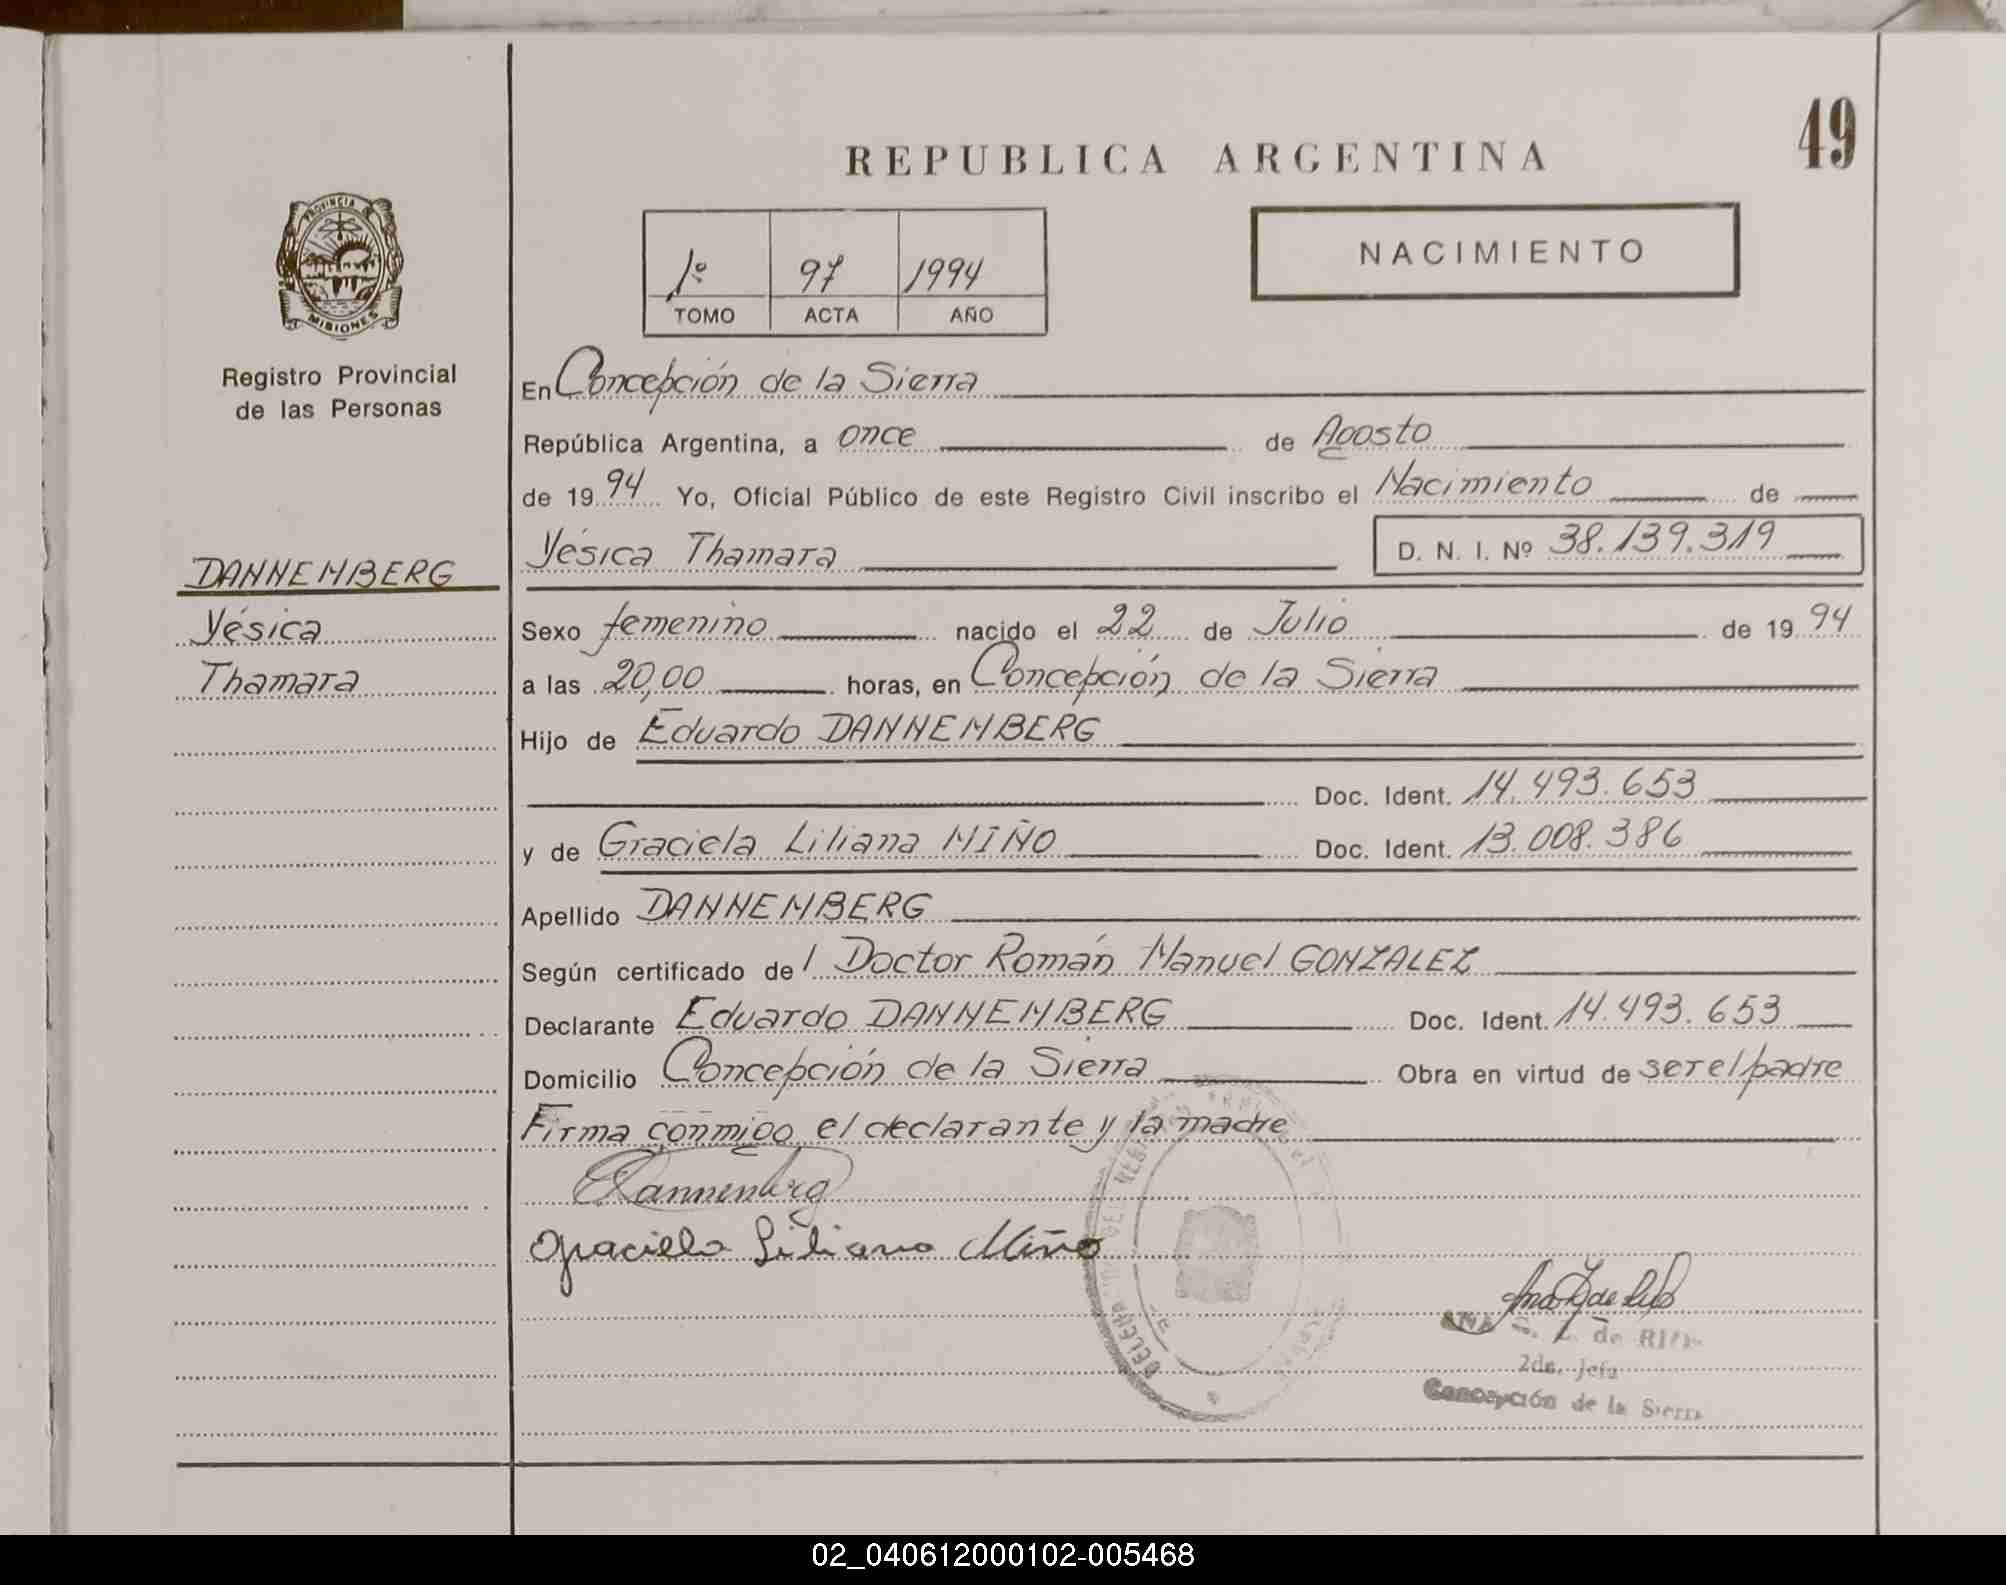 49
REPUBLICA ARGENTINA
PROVINCIA DE
MISIONES
NACIMIENTO
1º 97 1994
TOMO ACTA AÑO
Registro Provincial
de las Personas
DANNEMBERG
Yésica
Thamara
En Concepción de la Sierra
República Argentina, a once de Agosto
de 1994 Yo, Oficial Público de este Registro Civil inscribo el Nacimiento de
Yésica Thamara D. N. I. Nº 38.139.319
Sexo femenino nacido el 22 de Julio de 1994
a las 20,00 horas, en Concepción de la Sierra
Hijo de Eduardo DANNEMBERG
Doc. Ident. 14.493.653
y de Graciela Liliana MIÑO Doc. Ident. 13.008.386
Apellido DANNEMBERG
Según certificado del Doctor Román Manuel GONZALEZ
Declarante Eduardo DANNEMBERG Doc. Ident. 14.493.653
Domicilio Concepción de la Sierra Obra en virtud de ser el padre
Firma conmigo el declarante y la madre
Dannemberg
Graciela Liliana Miño
2da. Jefa
Concepción de la Sierra
02_040612000102-005468